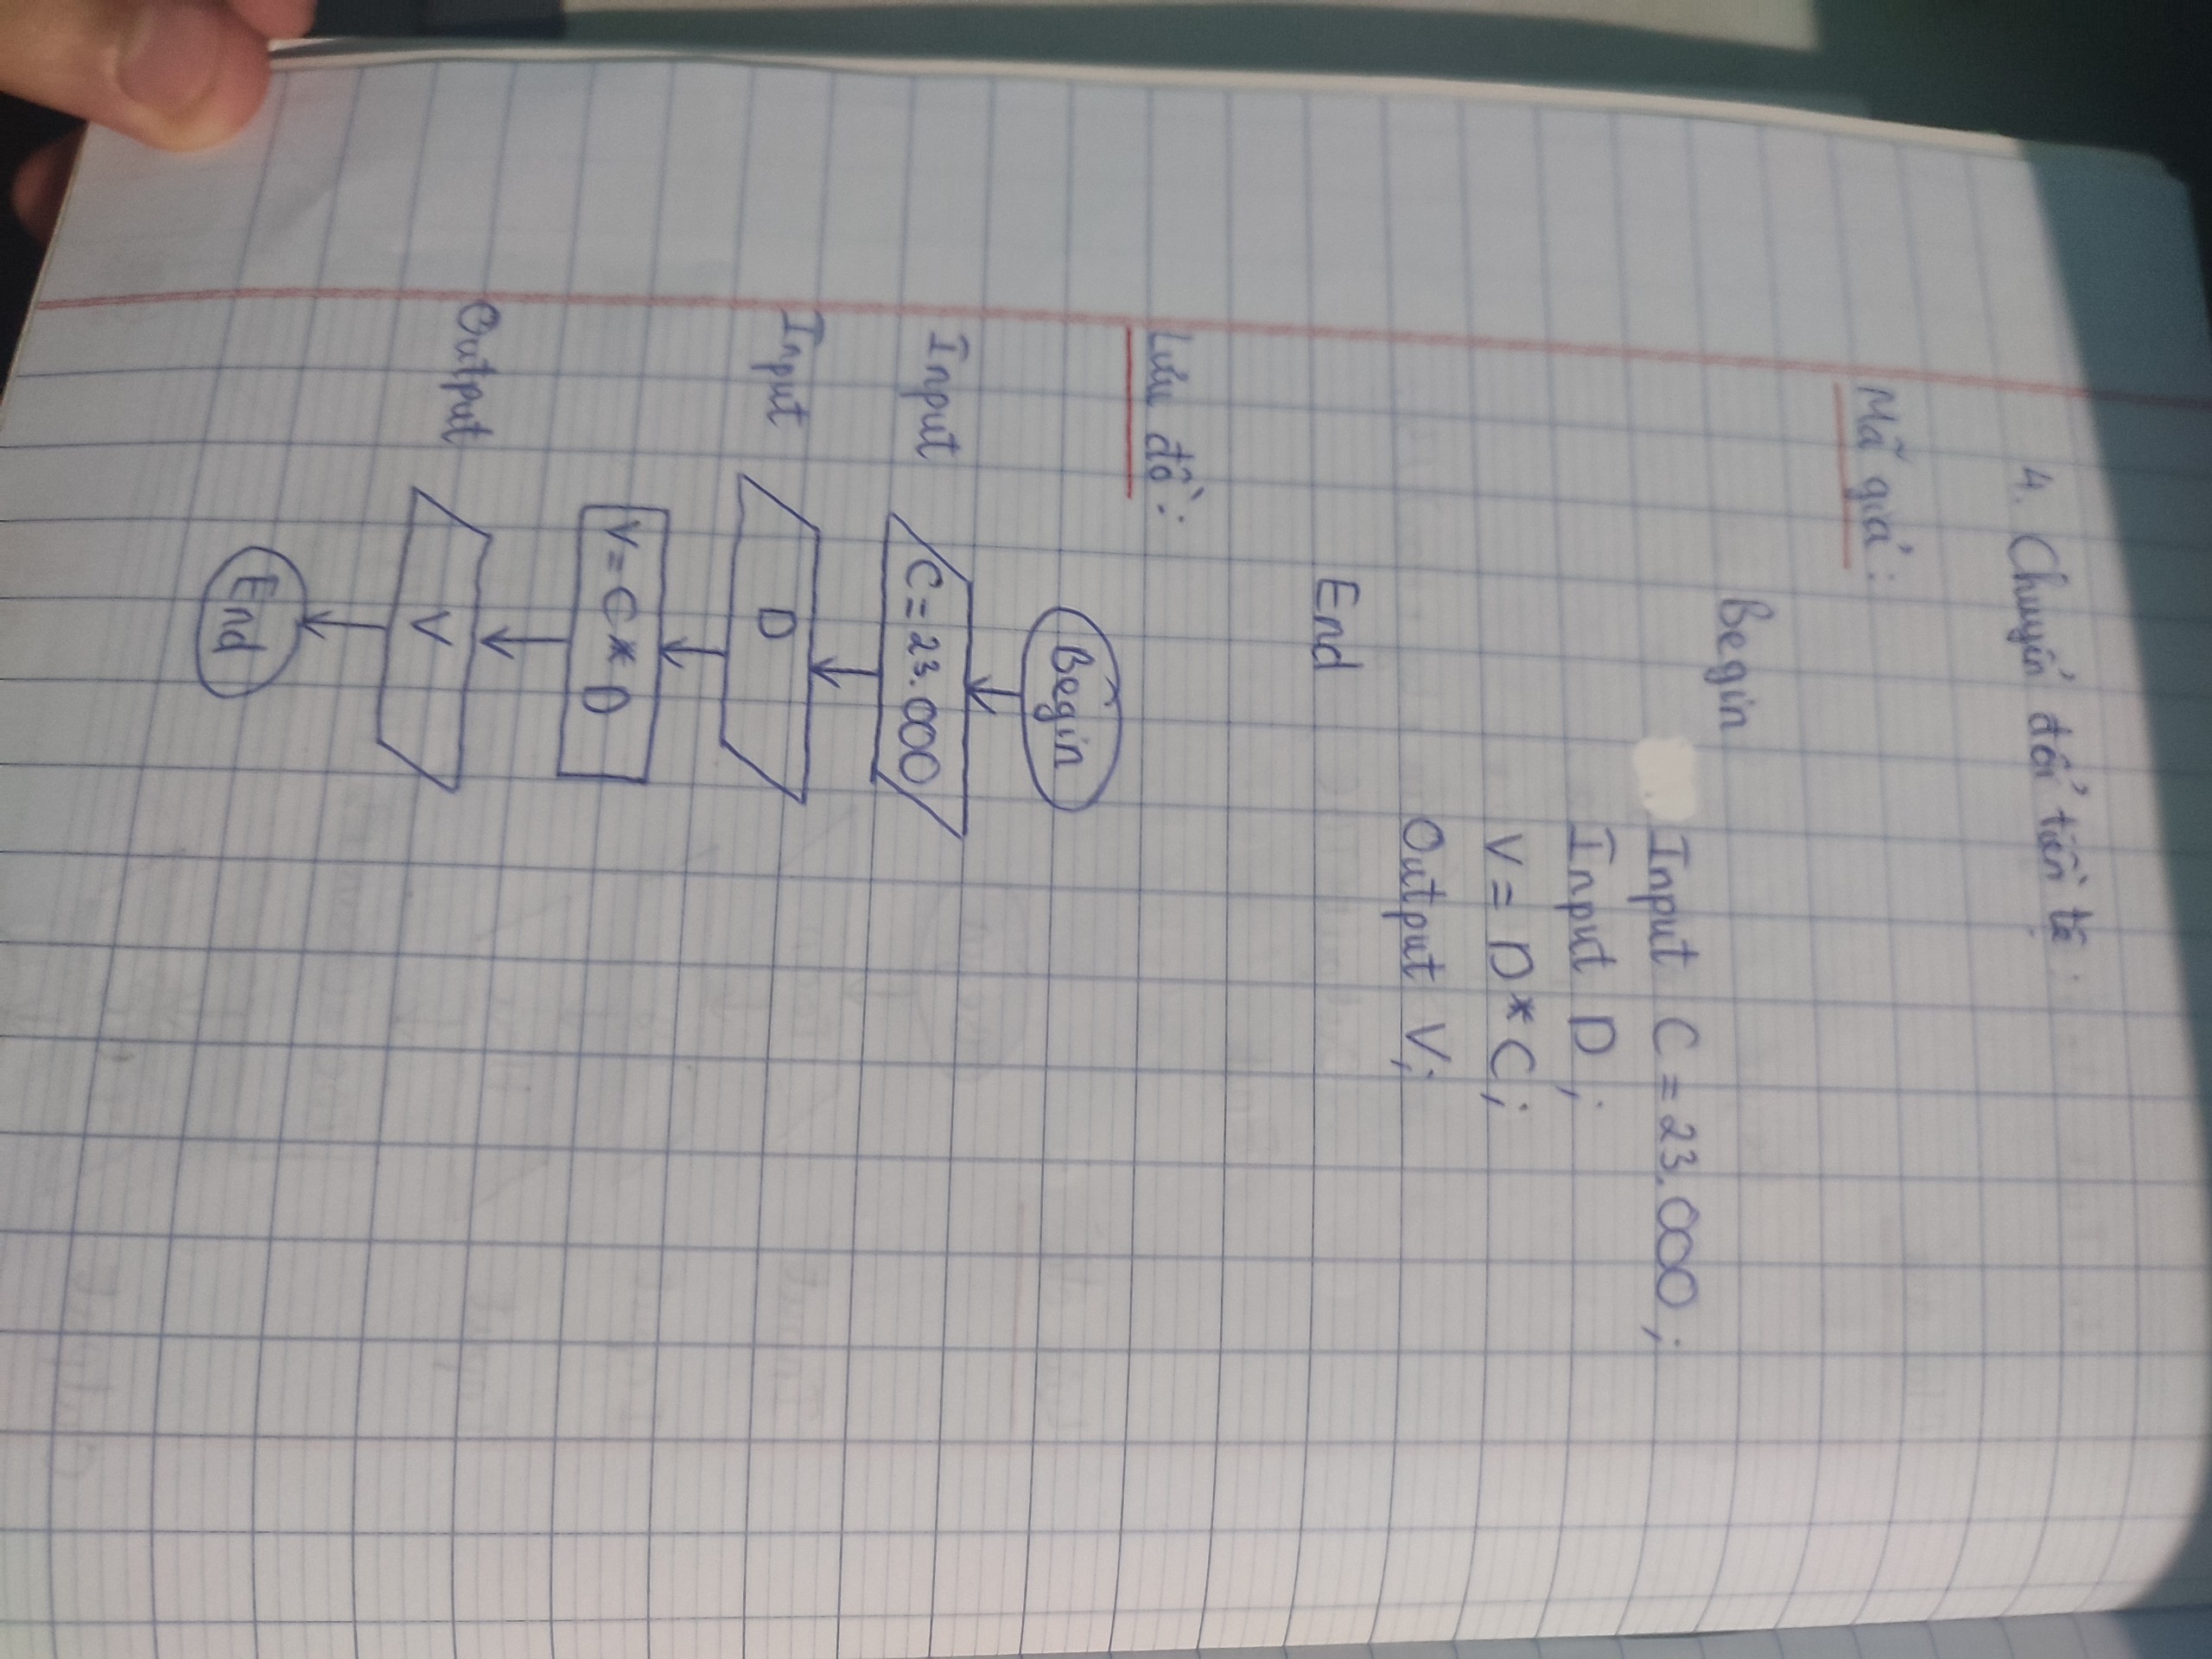 4. Chuyển đổi tiền tệ.
Mã giả:
Begin
Input C = 23.000;
Input D;
V = D * C;
Output V;
End
Lưu đồ:
Begin
Input C = 23.000
Input D
V = C * D
Output V
End